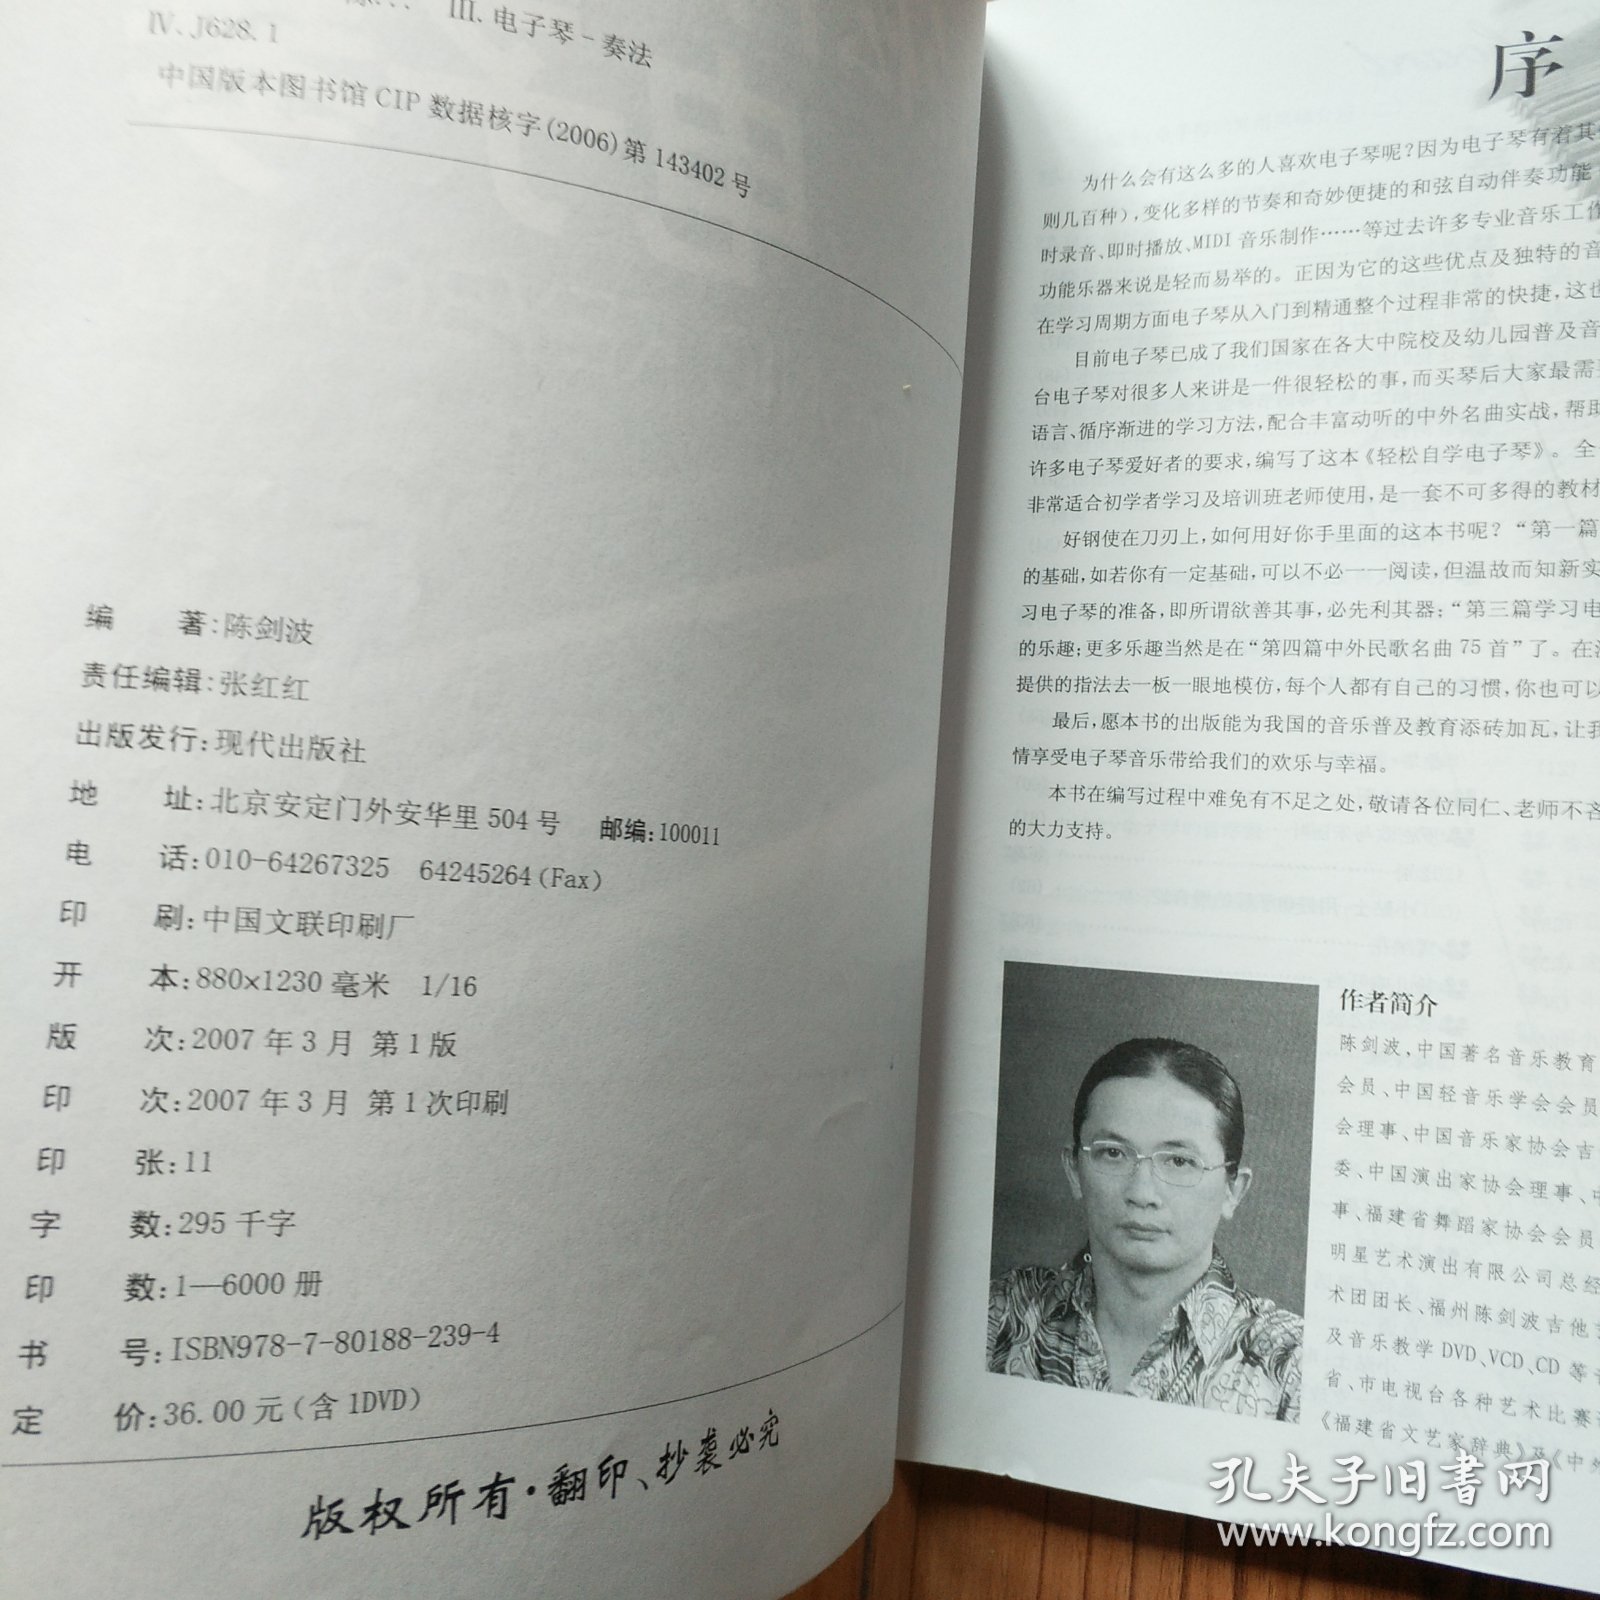 Ⅲ. 电子琴－奏法
Ⅳ. J628.1
中国版本图书馆 CIP 数据核字(2006)第 143402 号
编　　著:陈剑波
责任编辑:张红红
出版发行:现代出版社
地　　址:北京安定门外安华里 504 号　邮编:100011
电　　话:010-64267325　64245264(Fax)
印　　刷:中国文联印刷厂
开　　本:880×1230 毫米　1/16
版　　次:2007 年 3 月 第 1 版
印　　次:2007 年 3 月 第 1 次印刷
印　　张:11
字　　数:295 千字
印　　数:1—6000 册
书　　号:ISBN978-7-80188-239-4
定　　价:36.00 元(含 1DVD)
版权所有·翻印、抄袭必究
序
为什么会有这么多的人喜欢电子琴呢?因为电子琴有着其
则几百种),变化多样的节奏和奇妙便捷的和弦自动伴奏功能
时录音、即时播放、MIDI 音乐制作……等过去许多专业音乐工作
功能乐器来说是轻而易举的。正因为它的这些优点及独特的音
在学习周期方面电子琴从入门到精通整个过程非常的快捷,这也
目前电子琴已成了我们国家在各大中院校及幼儿园普及音
台电子琴对很多人来讲是一件很轻松的事,而买琴后大家最需
语言、循序渐进的学习方法,配合丰富动听的中外名曲实战,帮助
许多电子琴爱好者的要求,编写了这本《轻松自学电子琴》。全
非常适合初学者学习及培训班老师使用,是一套不可多得的教材
好钢使在刀刃上,如何用好你手里面的这本书呢?“第一篇
的基础,如若你有一定基础,可以不必一一阅读,但温故而知新实
习电子琴的准备,即所谓欲善其事,必先利其器;“第三篇学习电
的乐趣;更多乐趣当然是在“第四篇中外民歌名曲 75 首”了。在
提供的指法去一板一眼地模仿,每个人都有自己的习惯,你也可以
最后,愿本书的出版能为我国的音乐普及教育添砖加瓦,让我
情享受电子琴音乐带给我们的欢乐与幸福。
本书在编写过程中难免有不足之处,敬请各位同仁、老师不吝
的大力支持。
作者简介
陈剑波,中国著名音乐教育
会员、中国轻音乐学会会员
会理事、中国音乐家协会吉
委、中国演出家协会理事、中
事、福建省舞蹈家协会会员
明星艺术演出有限公司总经
术团团长、福州陈剑波吉他
及音乐教学 DVD、VCD、CD 等
省、市电视台各种艺术比赛
《福建省文艺家辞典》及《中
孔夫子旧书网
www.kongfz.com